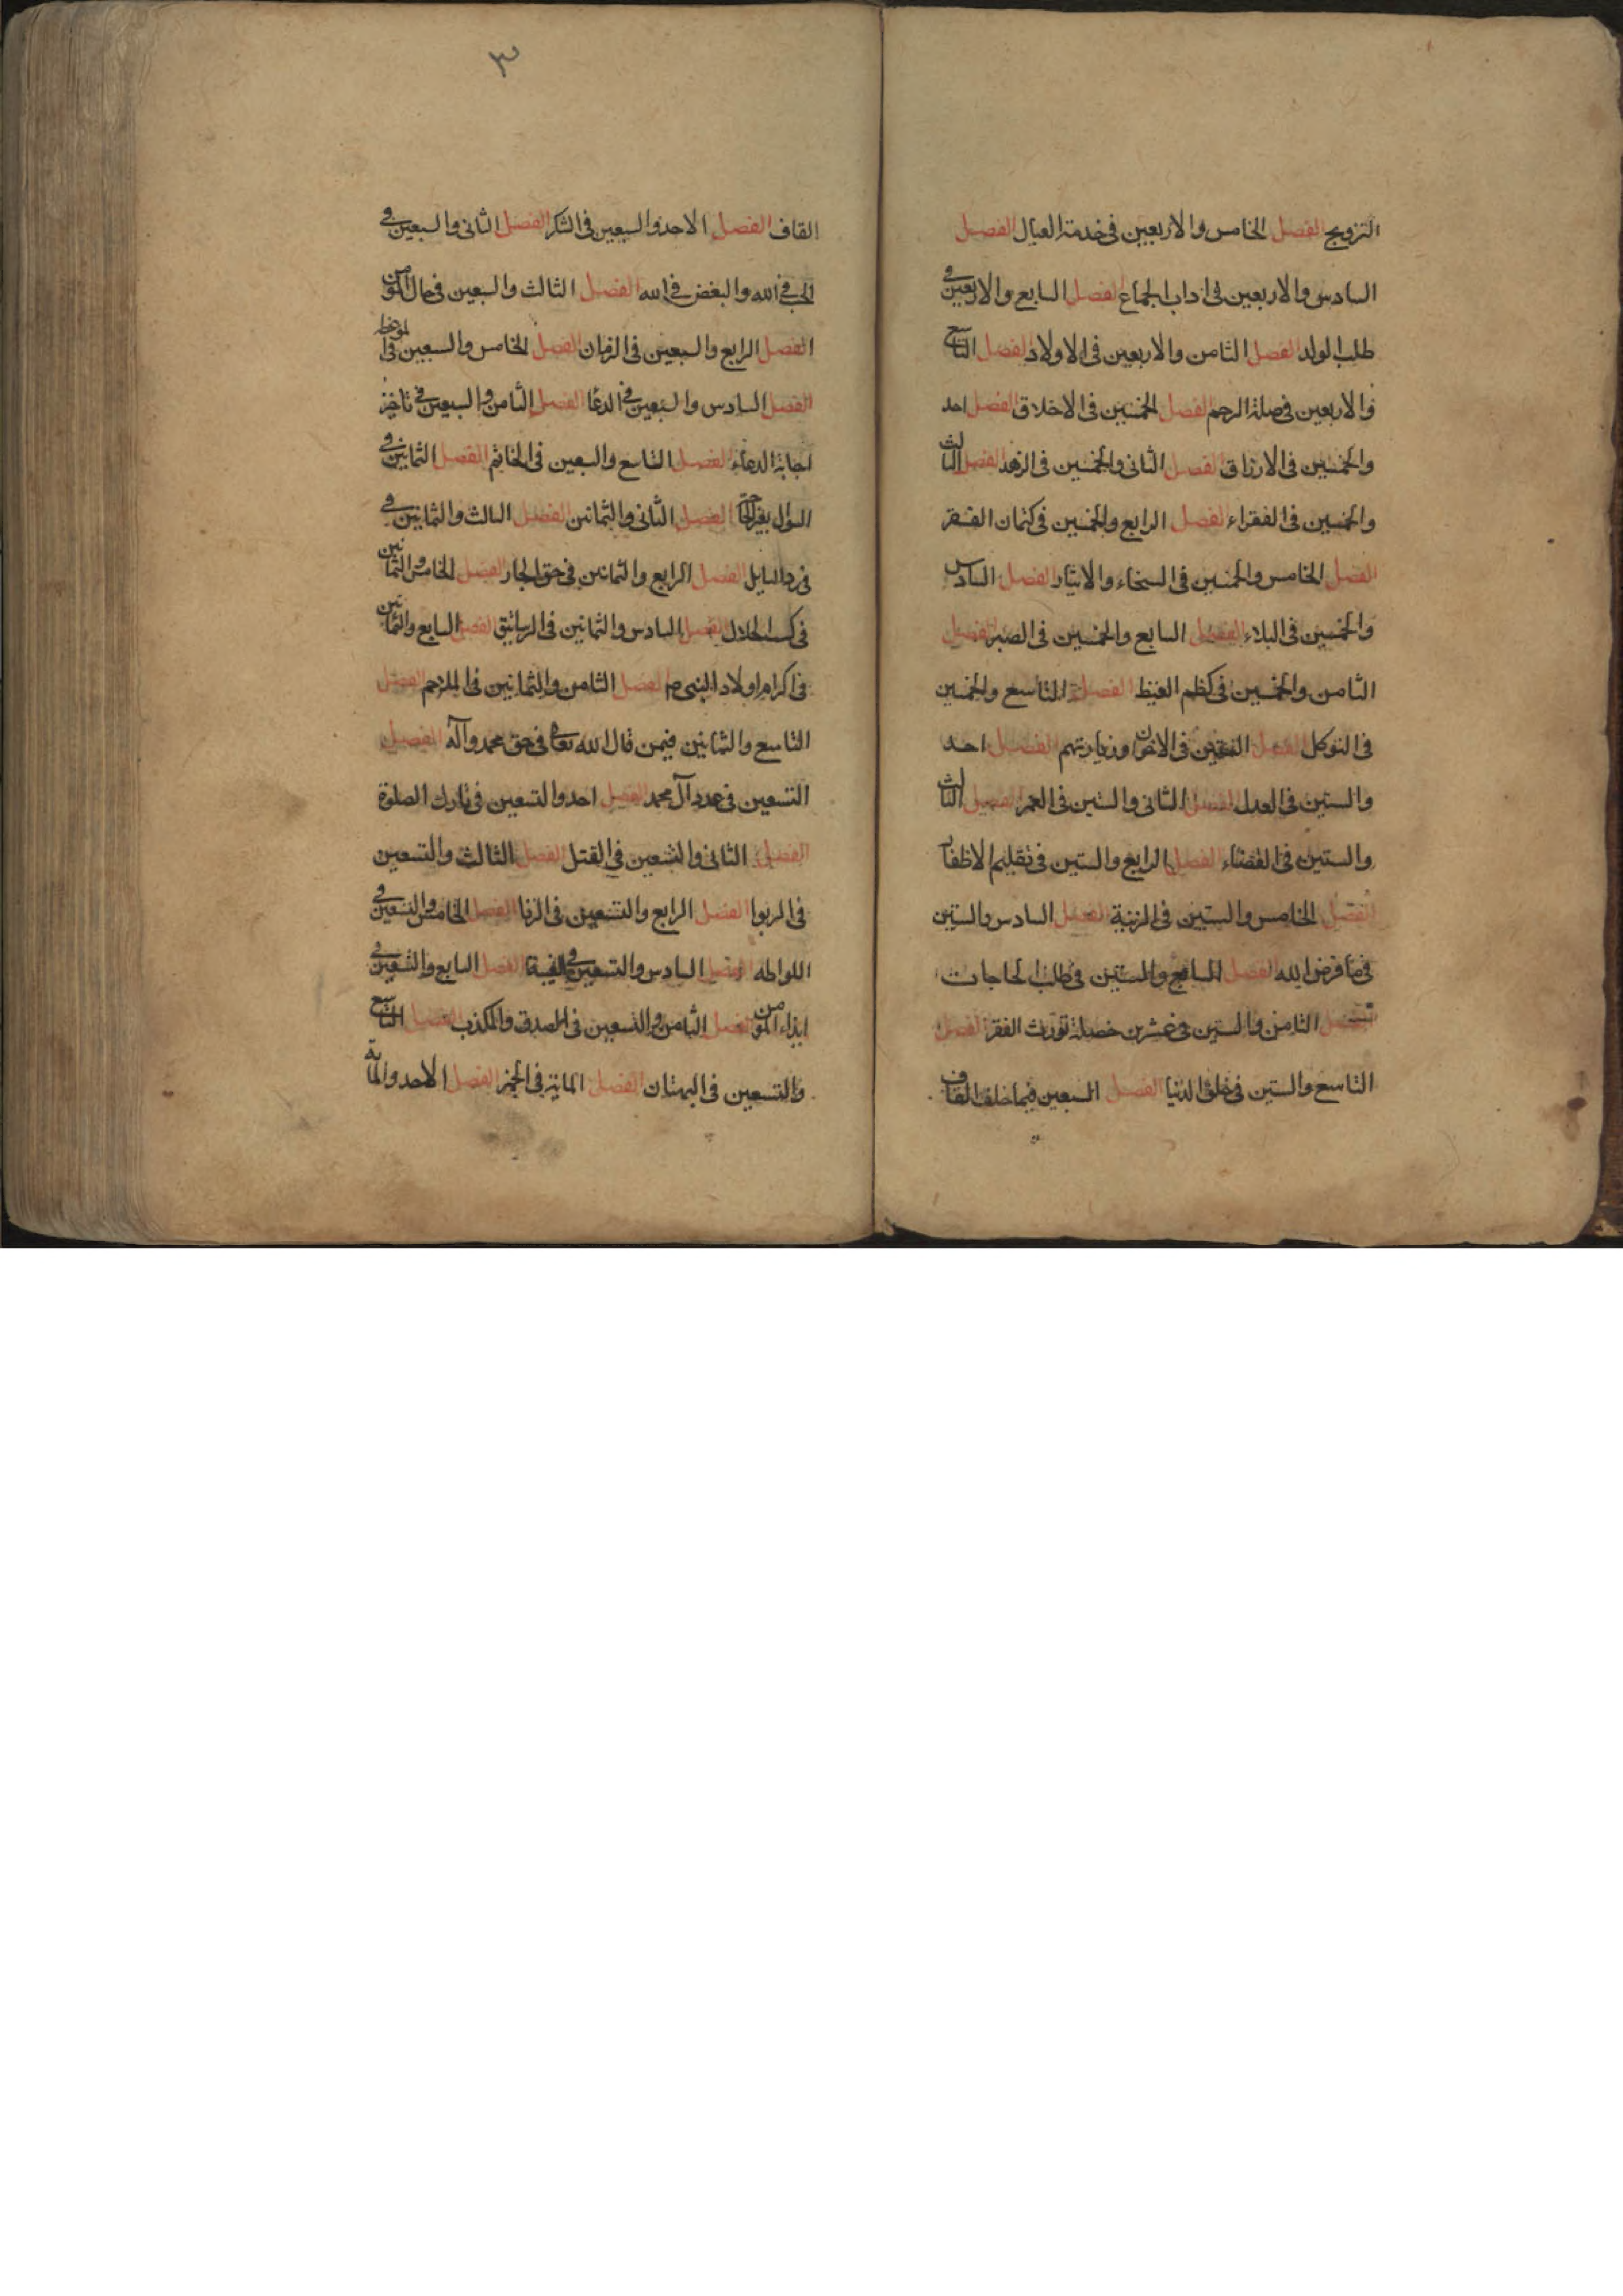 التزويج الفصل الخامس والاربعين فى خدمة العيال الفصل
السادس والاربعين فى اداب الجماع الفصل السابع والاربعين فى
طلب الولد الفصل الثامن والاربعين فى الاولاد الفصل التاسع
والاربعين فى صلة الرحم الفصل الخمسين فى الاخلاق الفصل احد
والخمسين فى الارزاق الفصل الثانى والخمسين فى الزهد الفصل الثالث
والخمسين فى الفقراء الفصل الرابع والخمسين فى كتمان الفقر
الفصل الخامس والخمسين فى السخاء والايثار الفصل السادس
والخمسين فى البلاء الفصل السابع والخمسين فى الصبر الفصل
الثامن والخمسين فى كظم الغيظ الفصل التاسع والخمسين
فى التوكل الفصل الستين فى الاخوان وزيارتهم الفصل احد
والستين فى العدل الفصل الثانى والستين فى العمر الفصل الثالث
والستين فى القضاء الفصل الرابع والستين فى تقليم الاظفار
الفصل الخامس والستين فى الزينة الفصل السادس والستين
فى ما فرض الله الفصل السابع والستين فى طلب الحاجات
الفصل الثامن والستين فى عشرين خصلة تورث الفقر الفصل
التاسع والستين فى خلق الدنيا الفصل السبعين فيما خلف القاف
٣
القاف الفصل الاحد والسبعين فى الشكر الفصل الثانى والسبعين فى
الحب فى الله والبغض فى الله الفصل الثالث والسبعين فى حال المؤمن
الفصل الرابع والسبعين فى الزمان الفصل الخامس والسبعين فى الموعظة
الفصل السادس والسبعين فى الدعا الفصل الثامن والسبعين فى تاخير
اجابة الدعاء الفصل التاسع والسبعين فى الخاتم الفصل الثمانين فى
السؤال بغير الفصل الثانى والثمانين الفصل الثالث والثمانين فى
فى رد السايل الفصل الرابع والثمانين فى حق الجار الفصل الخامس والثمانين
فى كسب الحلال الفصل السادس والثمانين فى الرساتيق الفصل السابع والثمانين
فى اكرام اولاد النبى ص الفصل الثامن والثمانين فى الملاحم الفصل
التاسع والثمانين فيمن قال الله تعالى فى حق محمد وآله الفصل
التسعين فى عدد آل محمد الفصل احد والتسعين فى تارك الصلوة
الفصل الثانى والتسعين فى القتل الفصل الثالث والتسعين
فى الربوا الفصل الرابع والتسعين فى الزنا الفصل الخامس والتسعين فى
اللواطه الفصل السادس والتسعين فى الغيبة الفصل السابع والتسعين فى
ايذاء المؤمن الفصل الثامن والتسعين فى الصدق والكذب الفصل التاسع
والتسعين فى البهتان الفصل الماية فى الخمر الفصل الاحد والماية